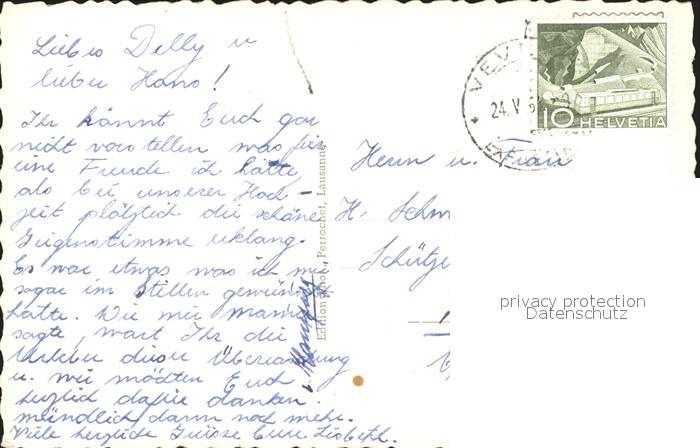 Liebes Delly u
lieber Hans!
Ihr könnt Euch gar
nicht vorstellen was für
eine Freude ich hatte
als bei unserer Hoch-
zeit plötzlich die schöne
Geigenstimme erklang.
Es war etwas was ich mir
sogar im Stillen gewünscht
hatte. Wie mir Mama
sagte, wart Ihr die
Urheber dieser Überraschung
u. wir möchten Euch
herzlich dafür danken.
mündlich dann noch mehr.
Viele herzliche Grüsse Eure Lisbeth.
Edition Perrochet, Lausanne
VEVEY
24. V.
10 HELVETIA
Herrn u. Frau
H. Schm
Schütze
privacy protection
Datenschutz